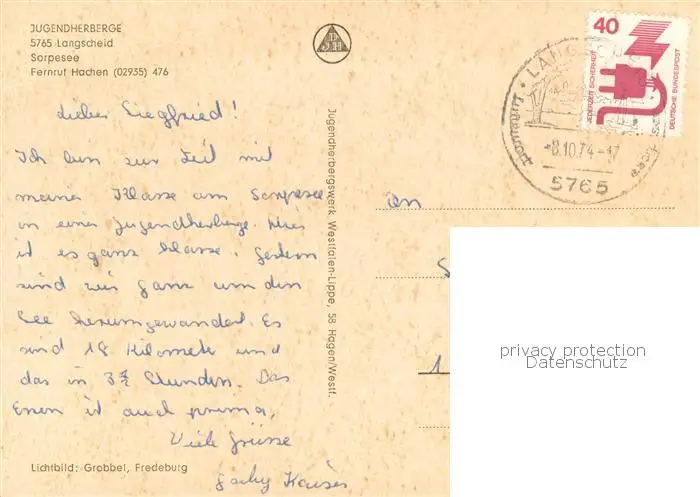 JUGENDHERBERGE
5765 Langscheid
Sorpesee
Fernruf Hachen (02935) 476
Lieber Siegfried!
Ich bin zur Zeit mit
meiner Klasse am Sorpesee
in einer Jugendherberge. Hier
ist es ganz klasse. Gestern
sind wir ganz um den
See herumgewandert. Es
sind 18 Kilometer und
das in 3 Stunden. Das
Essen ist auch prima.
Viele Grüsse
Lichtbild: Grobbel, Fredeburg
Jugendherbergswerk Westfalen-Lippe, 58 Hagen/Westf.
DJH
40
JEDERZEIT SICHERHEIT
DEUTSCHE BUNDESPOST
-8.10.74-17
5765
An
privacy protection
Datenschutz